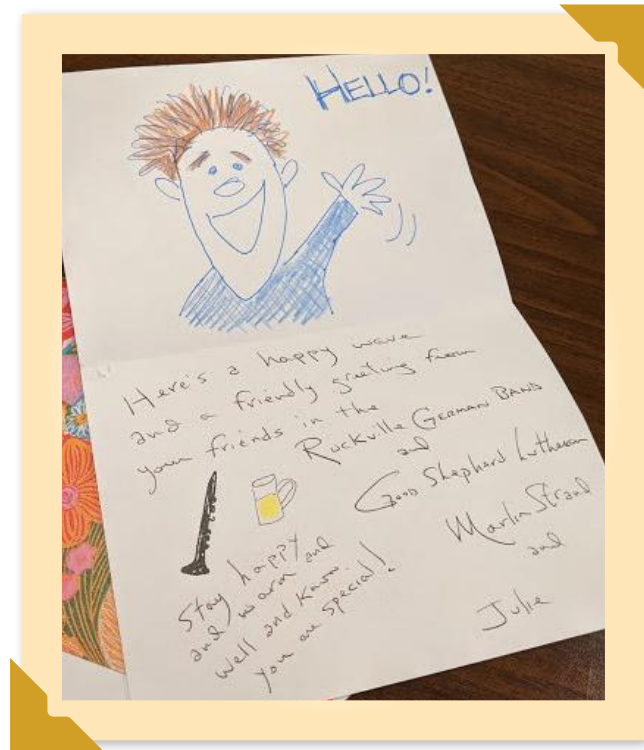 HELLO!
Here's a happy wave
and a friendly greeting from
your friends in the
Rockville German Band
and
Good Shepherd Lutheran
Marlin Strand
and
Julie
Stay happy
and warm and
well and know
you are special!